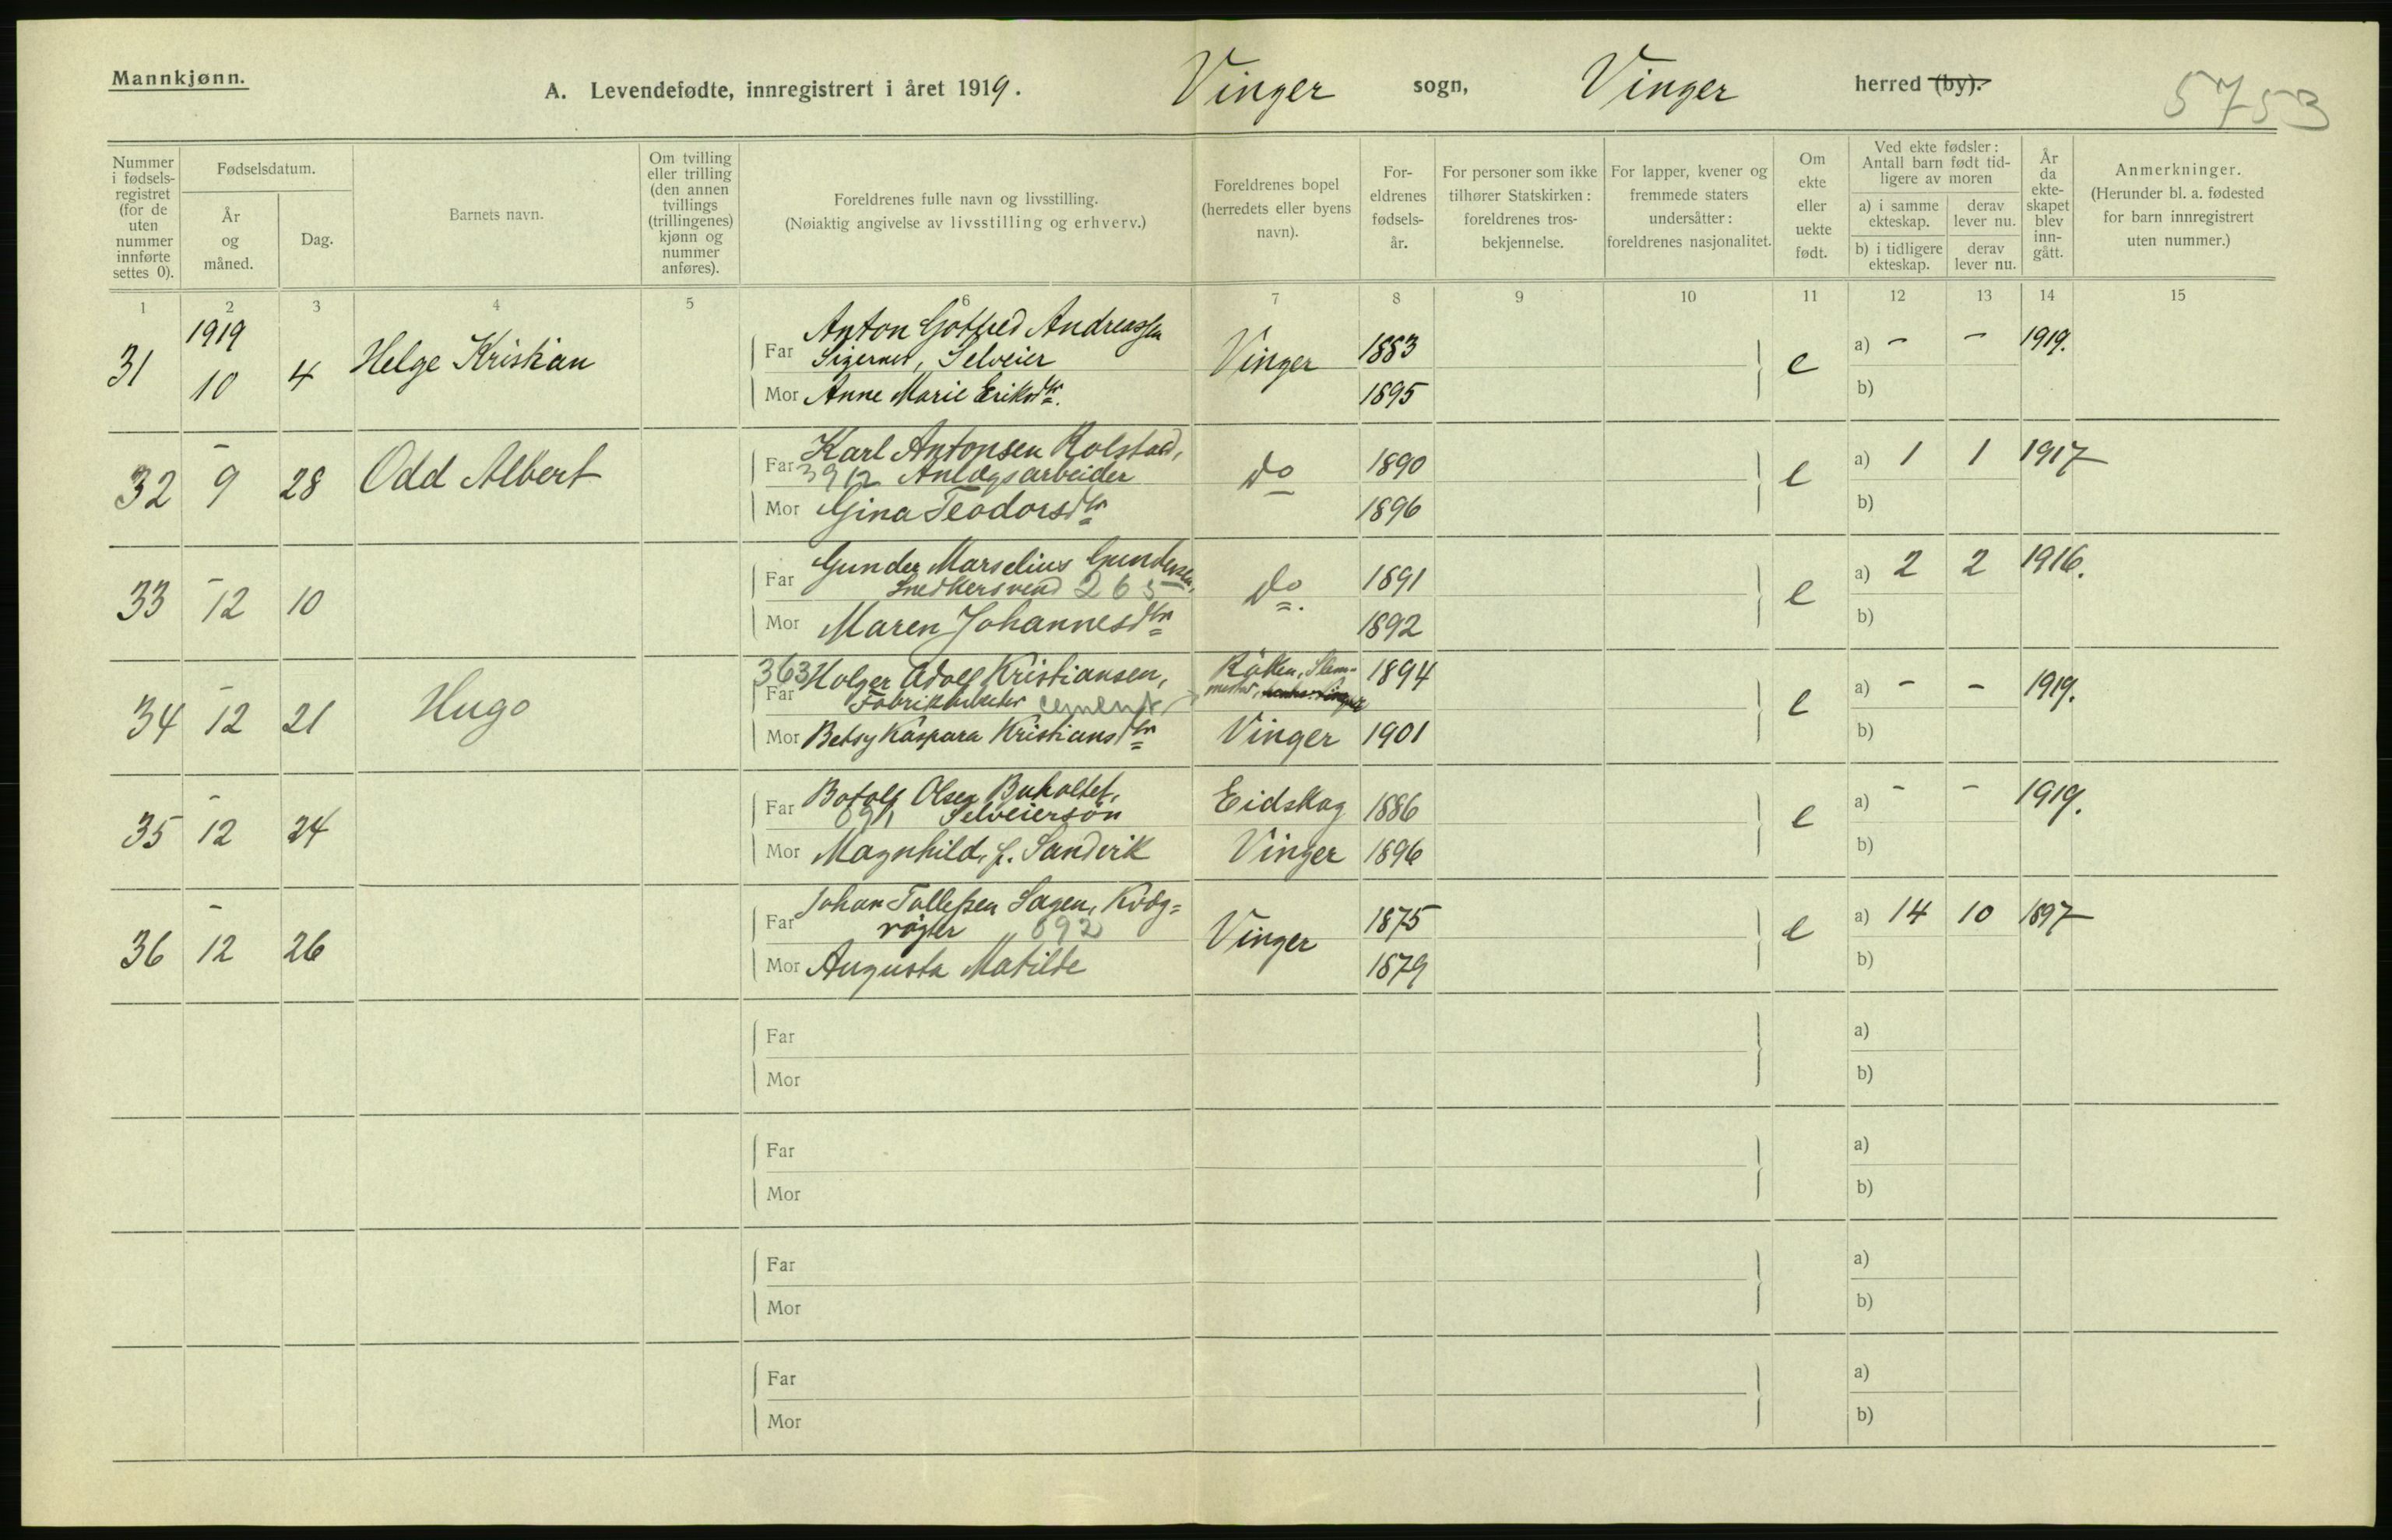 Mannkjønn.
A. Levendefødte, innregistrert i året 1919. Vinger sogn, Vinger herred (by).
5753
Nummer i fødsels-registret (for de uten nummer innførte settes 0).
Fødselsdatum.
År og måned.
Dag.
Barnets navn.
Om tvilling eller trilling (den annen tvillings (trillingenes) kjønn og nummer anføres).
Foreldrenes fulle navn og livsstilling.
(Nøiaktig angivelse av livsstilling og erhverv.)
Foreldrenes bopel (herredets eller byens navn).
For-eldrenes fødsels-år.
For personer som ikke tilhører Statskirken: foreldrenes tros-bekjennelse.
For lapper, kvener og fremmede staters undersåtter: foreldrenes nasjonalitet.
Om ekte eller uekte født.
Ved ekte fødsler: Antall barn født tid-ligere av moren
a) i samme ekteskap.
derav lever nu.
b) i tidligere ekteskap.
derav lever nu.
År da ekte-skapet blev inn-gått.
Anmerkninger.
(Herunder bl. a. fødested for barn innregistrert uten nummer.)
1 2 3 4 5 6 7 8 9 10 11 12 13 14 15
1919
31 10 4 Helge Kristian
Far Anton Gotfred Andreassen
Sigernes, Selveier
Vinger 1883 e a) - - 1919.
Mor Anne Marie Eriksdtr. 1895 b)
-
32 9 28 Odd Albert
Far Karl Antonsen Rolstad,
3912 Anlægsarbeider
do 1890 e a) 1 1 1917
Mor Gina Teodorsdtr 1896 b)
-
33 12 10
Far Gunder Marselius Gundersen,
Snedkersvend 265
do. 1891 e a) 2 2 1916.
Mor Maren Johannesdtr 1892 b)
-
34 12 21 Hugo
363 Holger Adolf Kristiansen,
Far Fabrikarbeider cement
Røken, Slem-
mestad, 1894 e a) - - 1919.
Mor Betsy Kaspara Kristiansdtr Vinger 1901 b)
-
35 12 24
Far Botolf Olsen Buholtet,
Selveiersøn
Eidskog 1886 e a) - - 1919.
Mor Magnhild, f. Sandvik Vinger 1896 b)
-
36 12 26
Far Johan Tollefsen Sagen, Kvæg=
røgter 692
Vinger 1875 e a) 14 10 1897
Mor Augusta Matilde 1879 b)
Far a)
Mor b)
Far a)
Mor b)
Far a)
Mor b)
Far a)
Mor b)